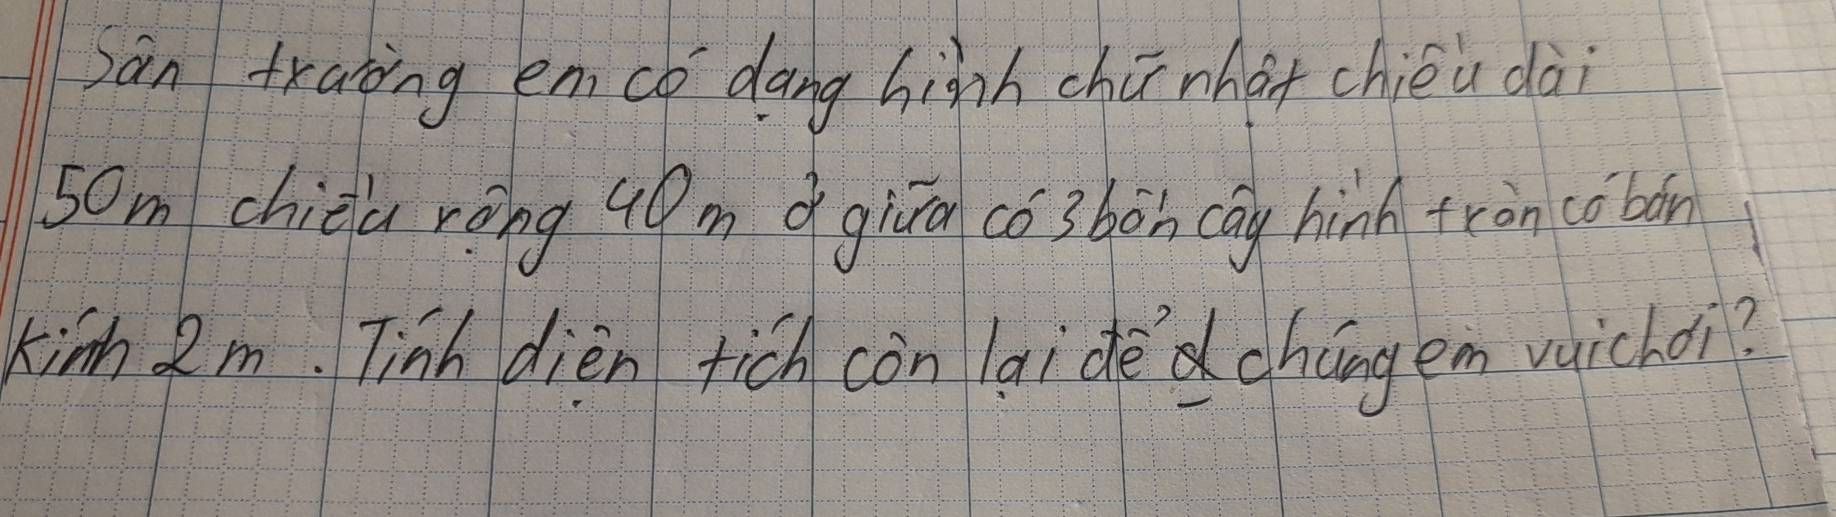 Sân trường em có dạng hình chữ nhật chiều dài
50m chiều rộng 40m ở giữa có 3 bồn cây hình tròn có bán
kính 2m. Tính diện tích còn lại để chúng em vui chơi?